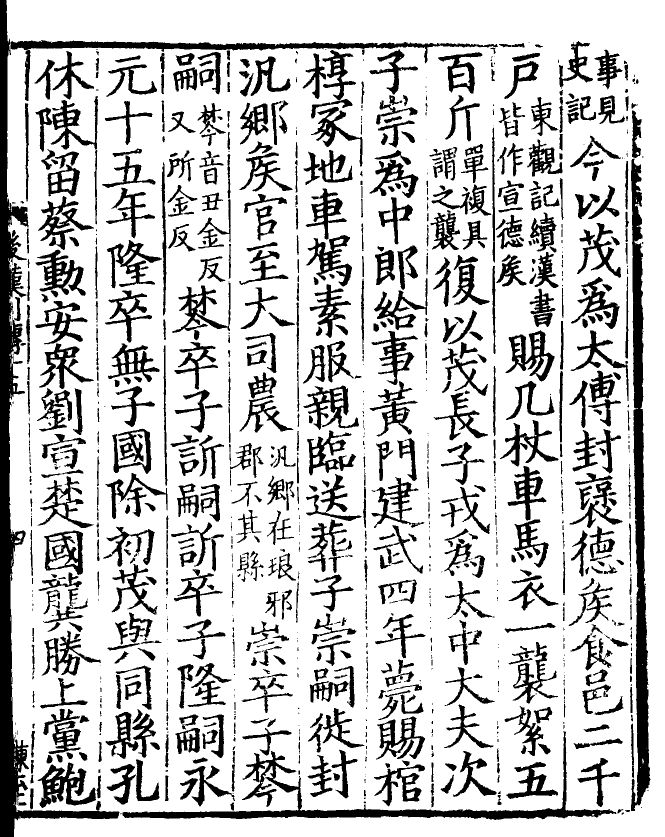 事見史記今以茂爲太傅封襃德矦食邑二千
戶東觀記續漢書皆作宣德矦賜几杖車馬衣一襲絮五
百斤單複具謂之襲復以茂長子戎爲太中大夫次
子崇爲中郎給事黃門建武四年薨賜棺
椁冢地車駕素服親臨送葬子崇嗣徙封
汎鄉矦官至大司農汎鄉在琅邪郡不其縣崇卒子棽
嗣棽音丑金反又所金反棽卒子訢嗣訢卒子隆嗣永
元十五年隆卒無子國除初茂與同縣孔
休陳留蔡勳安衆劉宣楚國龔勝上黨鮑